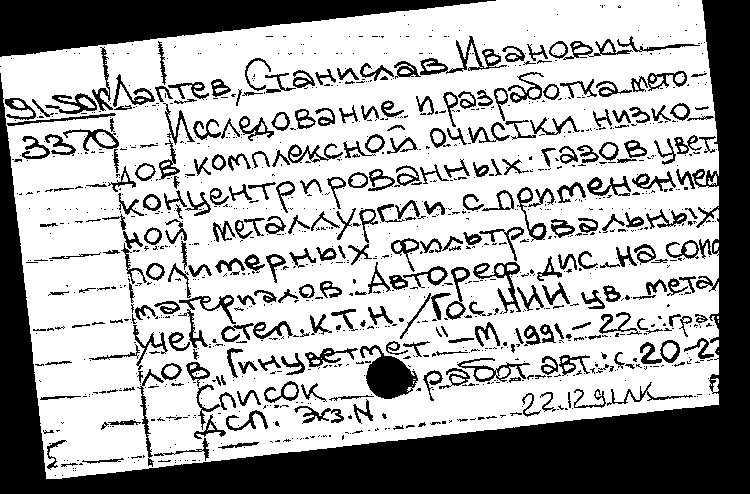 91-5ОК Лаптев, Станислав Иванович.
3370 Исследование и разработка мето-
дов комплексной очистки низко-
концентрированных газов цвет-
ной металлургии с применением
полимерных фильтровальных
материалов: Автореф. дис. на соис
учен. степ. к.т.н. / Гос. НИИ цв. метал
лов "Гинцветмет". - М., 1991. - 22 с. : граф
Список работ авт.: с. 20-22
ДСП. Экз. N.
22.12.91 ЛК